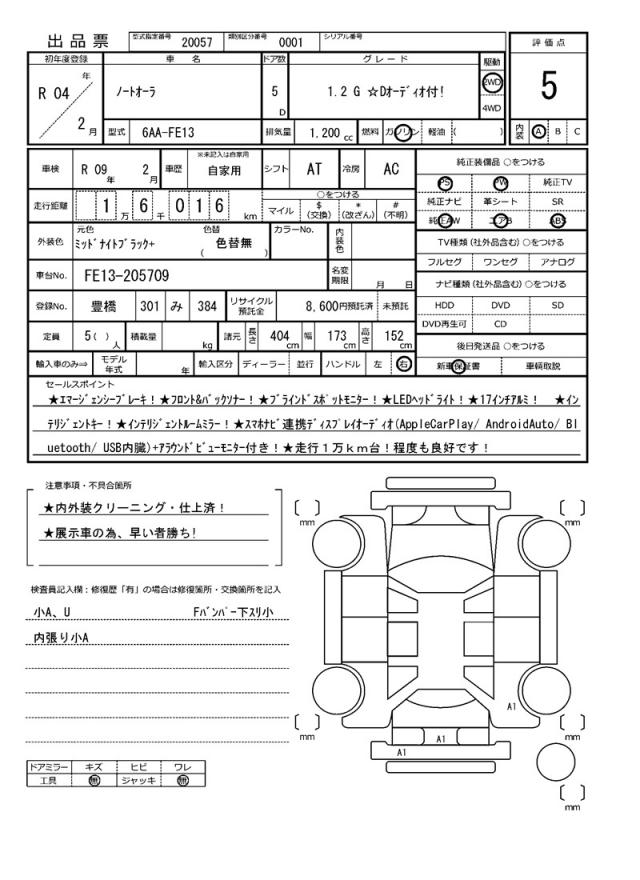 出品票
型式指定番号 20057 類別区分番号 0001 シリアル番号
評価点
5
内装 A B C
初年度登録 車名 ドア数 グレード 駆動
R 04 年 2 月
ﾉｰﾄｵｰﾗ
5 D
1.2 G ☆Dオーディオ付!
2WD
4WD
型式 6AA-FE13 排気量 1.200 cc 燃料 ガソリン 軽油 ( )
車検 R 09 年 2 月 車歴 ※未記入は自家用 自家用 シフト AT 冷房 AC
走行距離 1 万 6 千 0 1 6 km
○をつける
マイル $(交換) *(改ざん) #(不明)
外装色 元色 ﾐｯﾄﾞﾅｲﾄﾌﾞﾗｯｸ+ 色替 ( 色替無 ) カラーNo. 内装色
車台No. FE13-205709 名変期限 月 日
登録No. 豊橋 301 み 384 リサイクル預託金 8,600円預託済 未預託
定員 5( )人 積載量 kg 諸元 長さ 404 cm 幅 173 cm 高さ 152 cm
輸入車のみ⇒ モデル年式 年 輸入区分 ディーラー 並行 ハンドル 左 右
純正装備品 ○をつける
PS PW 純正TV
純正ナビ 革シート SR
純正AW エアB ABS
TV種類 (社外品含む) ○をつける
フルセグ ワンセグ アナログ
ナビ種類 (社外品含む) ○をつける
HDD DVD SD
DVD再生可 CD
後日発送品 ○をつける
新車保証書 車輌取説
セールスポイント
★ｴﾏｰｼﾞｪﾝｼｰﾌﾞﾚｰｷ！★ﾌﾛﾝﾄ&ﾊﾞｯｸｿﾅｰ！★ﾌﾞﾗｲﾝﾄﾞｽﾎﾟｯﾄﾓﾆﾀｰ！★LEDﾍｯﾄﾞﾗｲﾄ！★17ｲﾝﾁｱﾙﾐ！ ★ｲﾝ
ﾃﾘｼﾞｪﾝﾄｷｰ！★ｲﾝﾃﾘｼﾞｪﾝﾄﾙｰﾑﾐﾗｰ！★ｽﾏﾎﾅﾋﾞ連携ﾃﾞｨｽﾌﾟﾚｲｵｰﾃﾞｨｵ(AppleCarPlay/ AndroidAuto/ Bl
uetooth/ USB内臓)+ｱﾗｳﾝﾄﾞﾋﾞｭｰﾓﾆﾀｰ付き！★走行１万ｋｍ台！程度も良好です！
注意事項・不具合箇所
★内外装クリーニング・仕上済！
★展示車の為、早い者勝ち!
検査員記入欄：修復歴「有」の場合は修復箇所・交換箇所を記入
小A、U Fﾊﾞﾝﾊﾟｰ下ｽﾘ小
内張り小A
ドアミラー キズ ヒビ ワレ
工具 無 ジャッキ 無
mm
mm
A1
A1
A1
mm
mm
mm